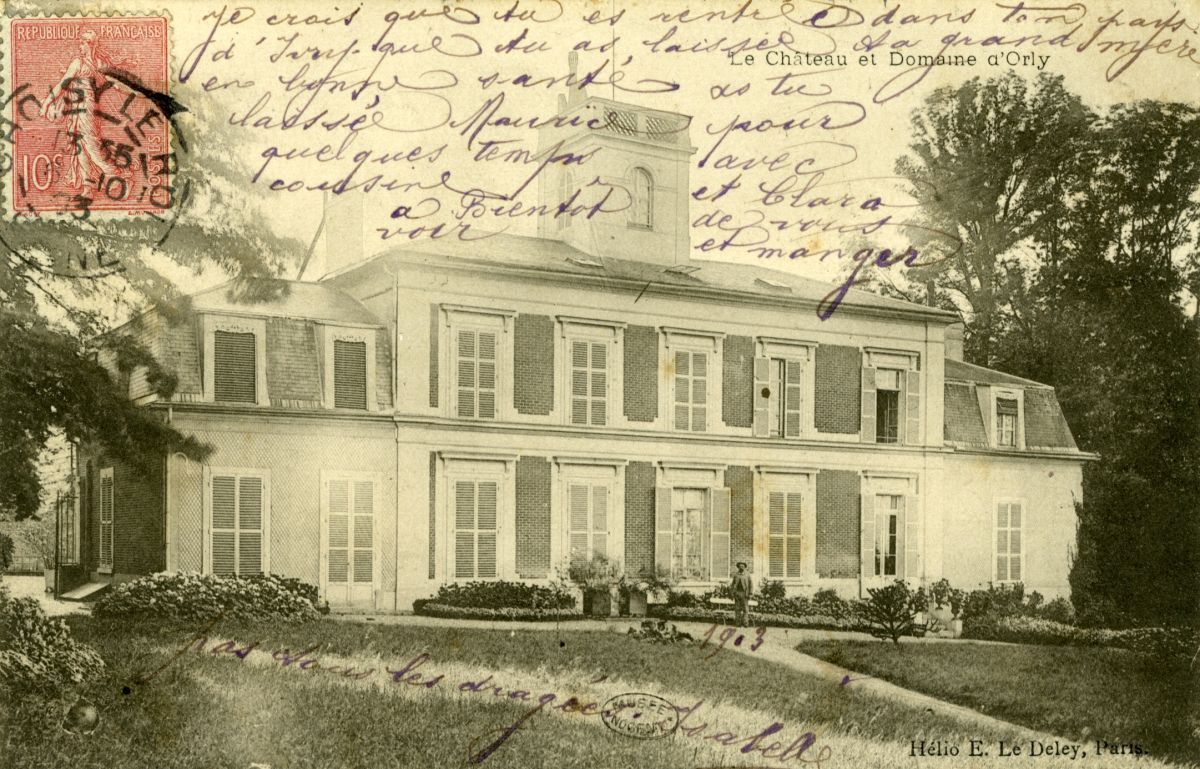 RÉPUBLIQUE FRANÇAISE
10c
POSTES
CHOISY-LE-ROI
13
10
Le Château et Domaine d'Orly
Je crois que tu es rentré dans ton pays
d'Ivry que tu as laissée ta grand mère
en bonne santé as tu
laissé Maurice pour
quelques temps avec
cousine et Clara
a Bientot de vous
voir et manger
1903
pas tous les dragées
Isabelle
MUSÉE
Hélio E. Le Deley, Paris.